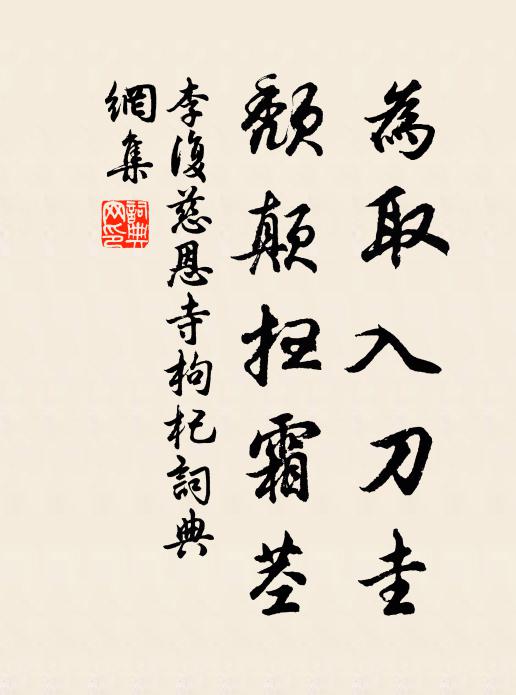 為取入刀圭
頹顛扫霜莖
李復慈恩寺枸杞詞典
網集
詞典
网印